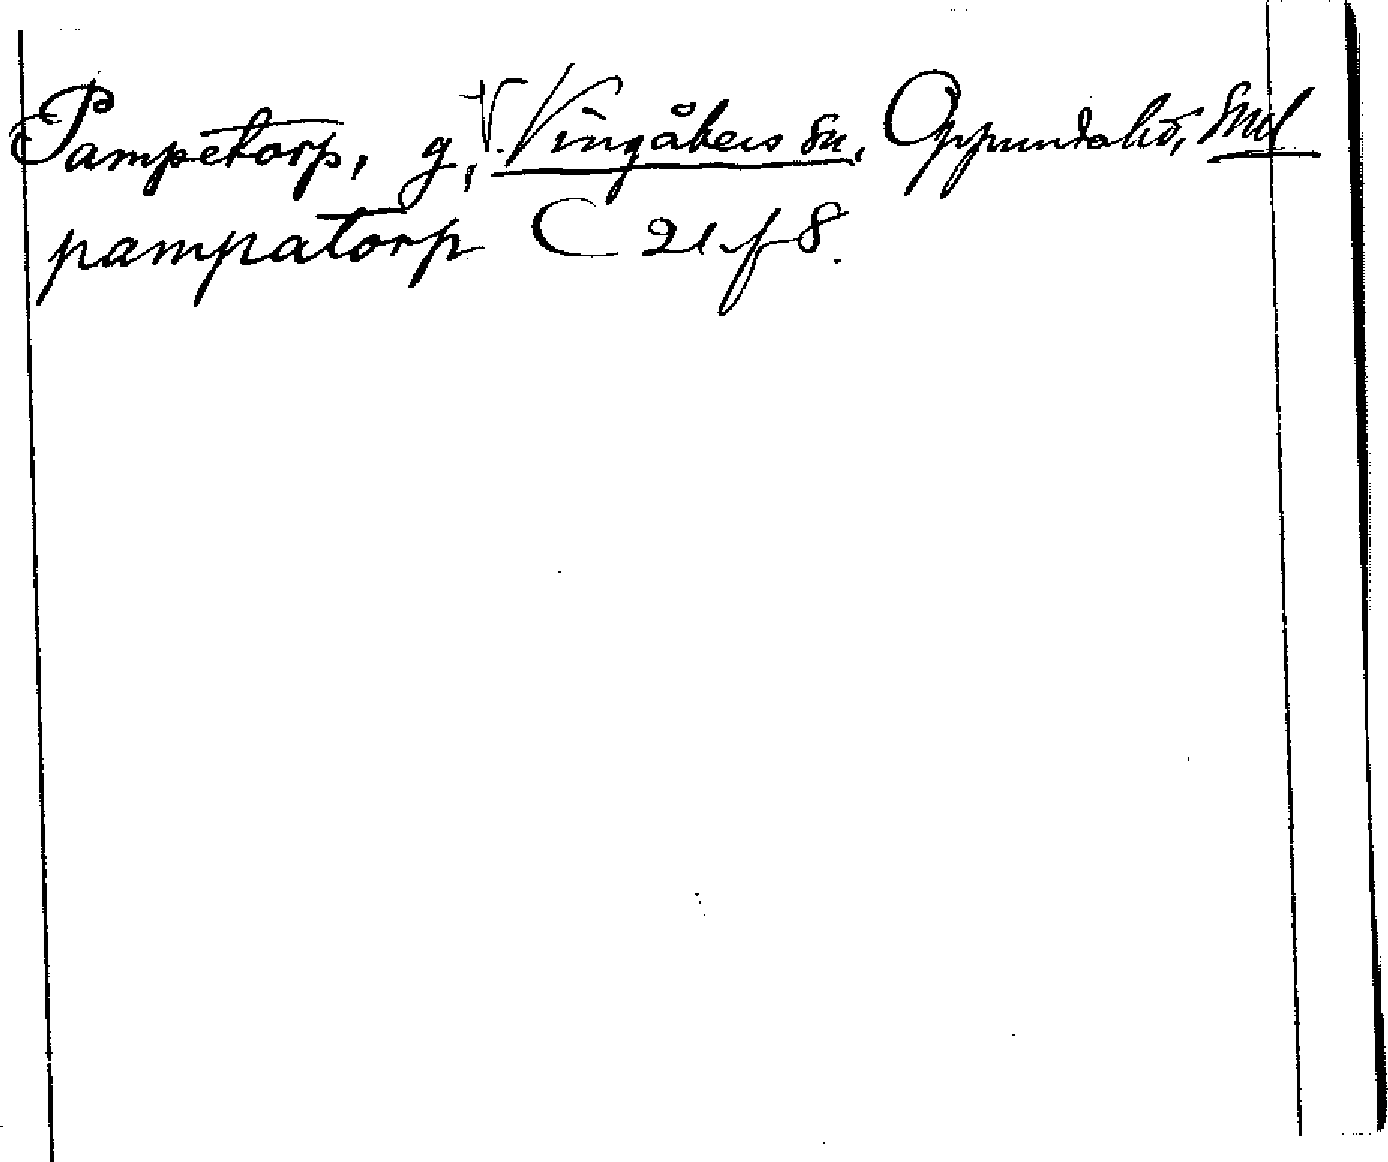 Pampetorp, g, V. Vingåkers sn, Oppunda hd, Sml
pampatorp C 21 f 8.